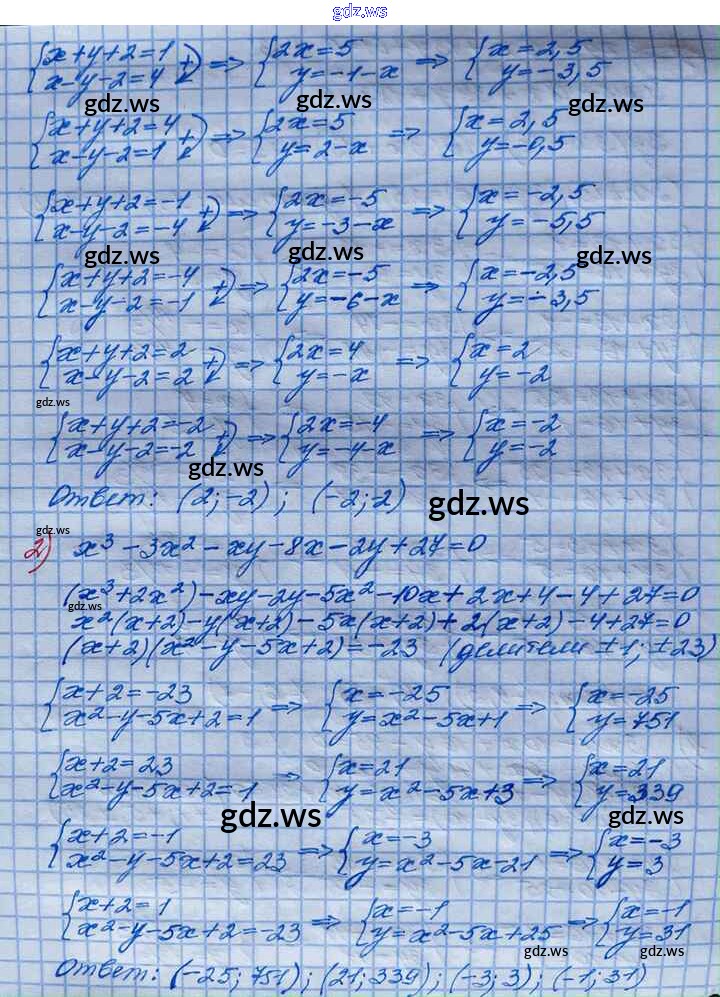 gdz.ws
{x+y+2=1 x-y-2=4 +) => {2x=5 y=-1-x => {x=2,5 y=-3,5
gdz.ws gdz.ws gdz.ws
{x+y+2=4 x-y-2=1 +) => {2x=5 y=2-x => {x=2,5 y=-0,5
{x+y+2=-1 x-y-2=-4 +) => {2x=-5 y=-3-x => {x=-2,5 y=-5,5
gdz.ws gdz.ws gdz.ws
{x+y+2=-4 x-y-2=-1 +) => {2x=-5 y=-6-x => {x=-2,5 y=-3,5
{x+y+2=2 x-y-2=2 +) => {2x=4 y=-x => {x=2 y=-2
gdz.ws
{x+y+2=-2 x-y-2=-2 +) => {2x=-4 y=-4-x => {x=-2 y=-2
gdz.ws
Ответ: (2;-2); (-2;-2)
gdz.ws
gdz.ws
2) x³-3x²-xy-8x-2y+27=0
(x³+2x²)-xy-2y-5x²-10x+2x+4-4+27=0
gdz.ws
x²(x+2)-y(x+2)-5x(x+2)+2(x+2)-4+27=0
(x+2)(x²-y-5x+2)=-23 (делители ±1; ±23)
{x+2=-23 x²-y-5x+2=1 => {x=-25 y=x²-5x+1 => {x=-25 y=751
{x+2=23 x²-y-5x+2=-1 => {x=21 y=x²-5x+3 => {x=21 y=339
gdz.ws gdz.ws gdz.ws
{x+2=-1 x²-y-5x+2=23 => {x=-3 y=x²-5x-21 => {x=-3 y=3
{x+2=1 x²-y-5x+2=-23 => {x=-1 y=x²-5x+25 => {x=-1 y=31
gdz.ws gdz.ws
Ответ: (-25; 751); (21; 339); (-3; 3); (-1; 31)
gdz.ws gdz.ws